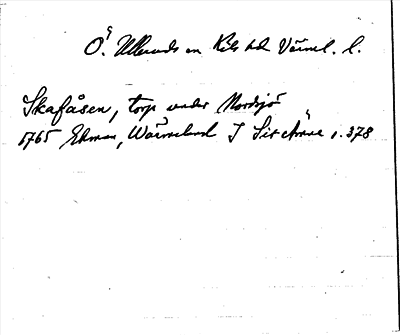 Ö. Ulleruds sn Kils hd Värml. l.
Skafåsen, torp under Nordsjö
1765 Ekman, Wärmeland I Sit s. 378